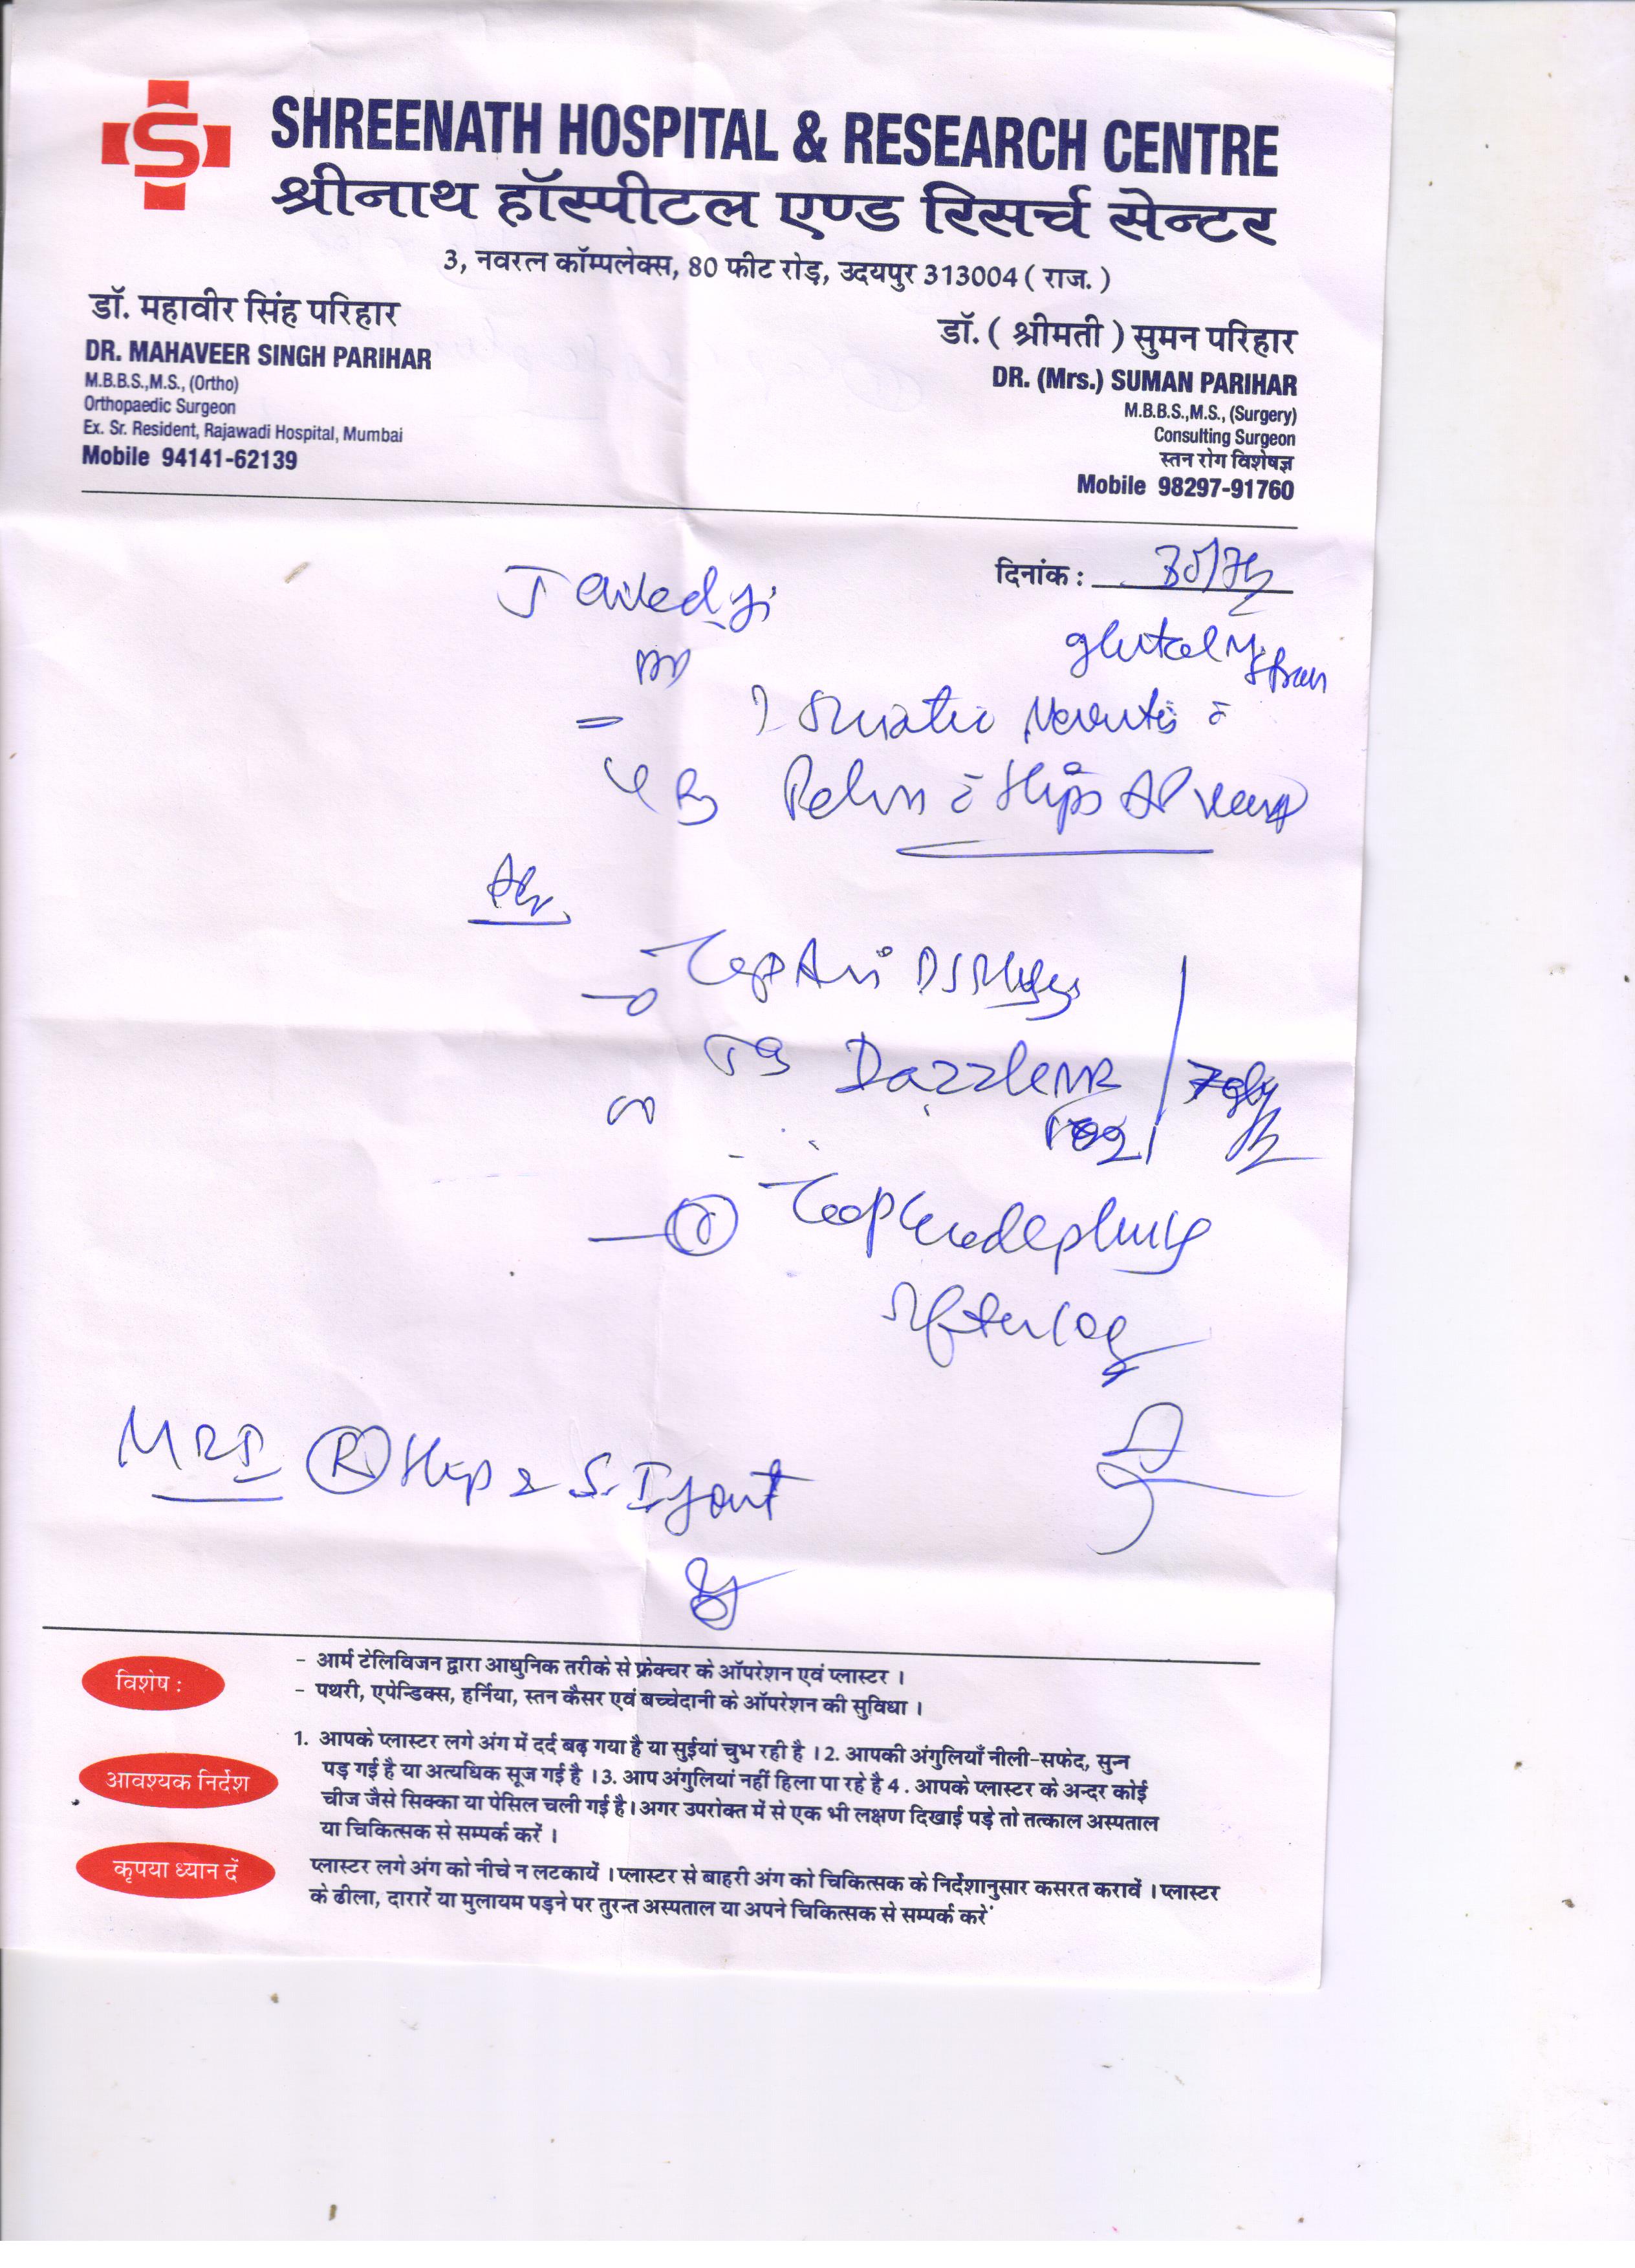 S
SHREENATH HOSPITAL & RESEARCH CENTRE
श्रीनाथ हॉस्पीटल एण्ड रिसर्च सेन्टर
3, नवरत्न कॉम्पलेक्स, 80 फीट रोड़, उदयपुर 313004 ( राज. )
डॉ. महावीर सिंह परिहार
DR. MAHAVEER SINGH PARIHAR
M.B.B.S.,M.S., (Ortho)
Orthopaedic Surgeon
Ex. Sr. Resident, Rajawadi Hospital, Mumbai
Mobile 94141-62139
डॉ. ( श्रीमती ) सुमन परिहार
DR. (Mrs.) SUMAN PARIHAR
M.B.B.S.,M.S., (Surgery)
Consulting Surgeon
स्तन रोग विशेषज्ञ
Mobile 98297-91760
दिनांक :
gluteal
Sciatic Neuritis
Pelvis c Hips AP view
Adv.
Cap
Dazzle MR
MRI (R) Hip & S.I Joint
विशेष :
- आर्म टेलिविजन द्वारा आधुनिक तरीके से फ्रेक्चर के ऑपरेशन एवं प्लास्टर ।
- पथरी, एपेन्डिक्स, हर्निया, स्तन कैसर एवं बच्चेदानी के ऑपरेशन की सुविधा ।
आवश्यक निर्देश
1. आपके प्लास्टर लगे अंग में दर्द बढ़ गया है या सुईयां चुभ रही है । 2. आपकी अंगुलियाँ नीली-सफेद, सुन्न
पड़ गई है या अत्यधिक सूज गई है । 3. आप अंगुलियां नहीं हिला पा रहे है 4 . आपके प्लास्टर के अन्दर कोई
चीज जैसे सिक्का या पेसिल चली गई है। अगर उपरोक्त में से एक भी लक्षण दिखाई पड़े तो तत्काल अस्पताल
या चिकित्सक से सम्पर्क करें ।
कृपया ध्यान दें
प्लास्टर लगे अंग को नीचे न लटकायें । प्लास्टर से बाहरी अंग को चिकित्सक के निर्देशानुसार कसरत करावें । प्लास्टर
के ढीला, दारारें या मुलायम पड़ने पर तुरन्त अस्पताल या अपने चिकित्सक से सम्पर्क करें